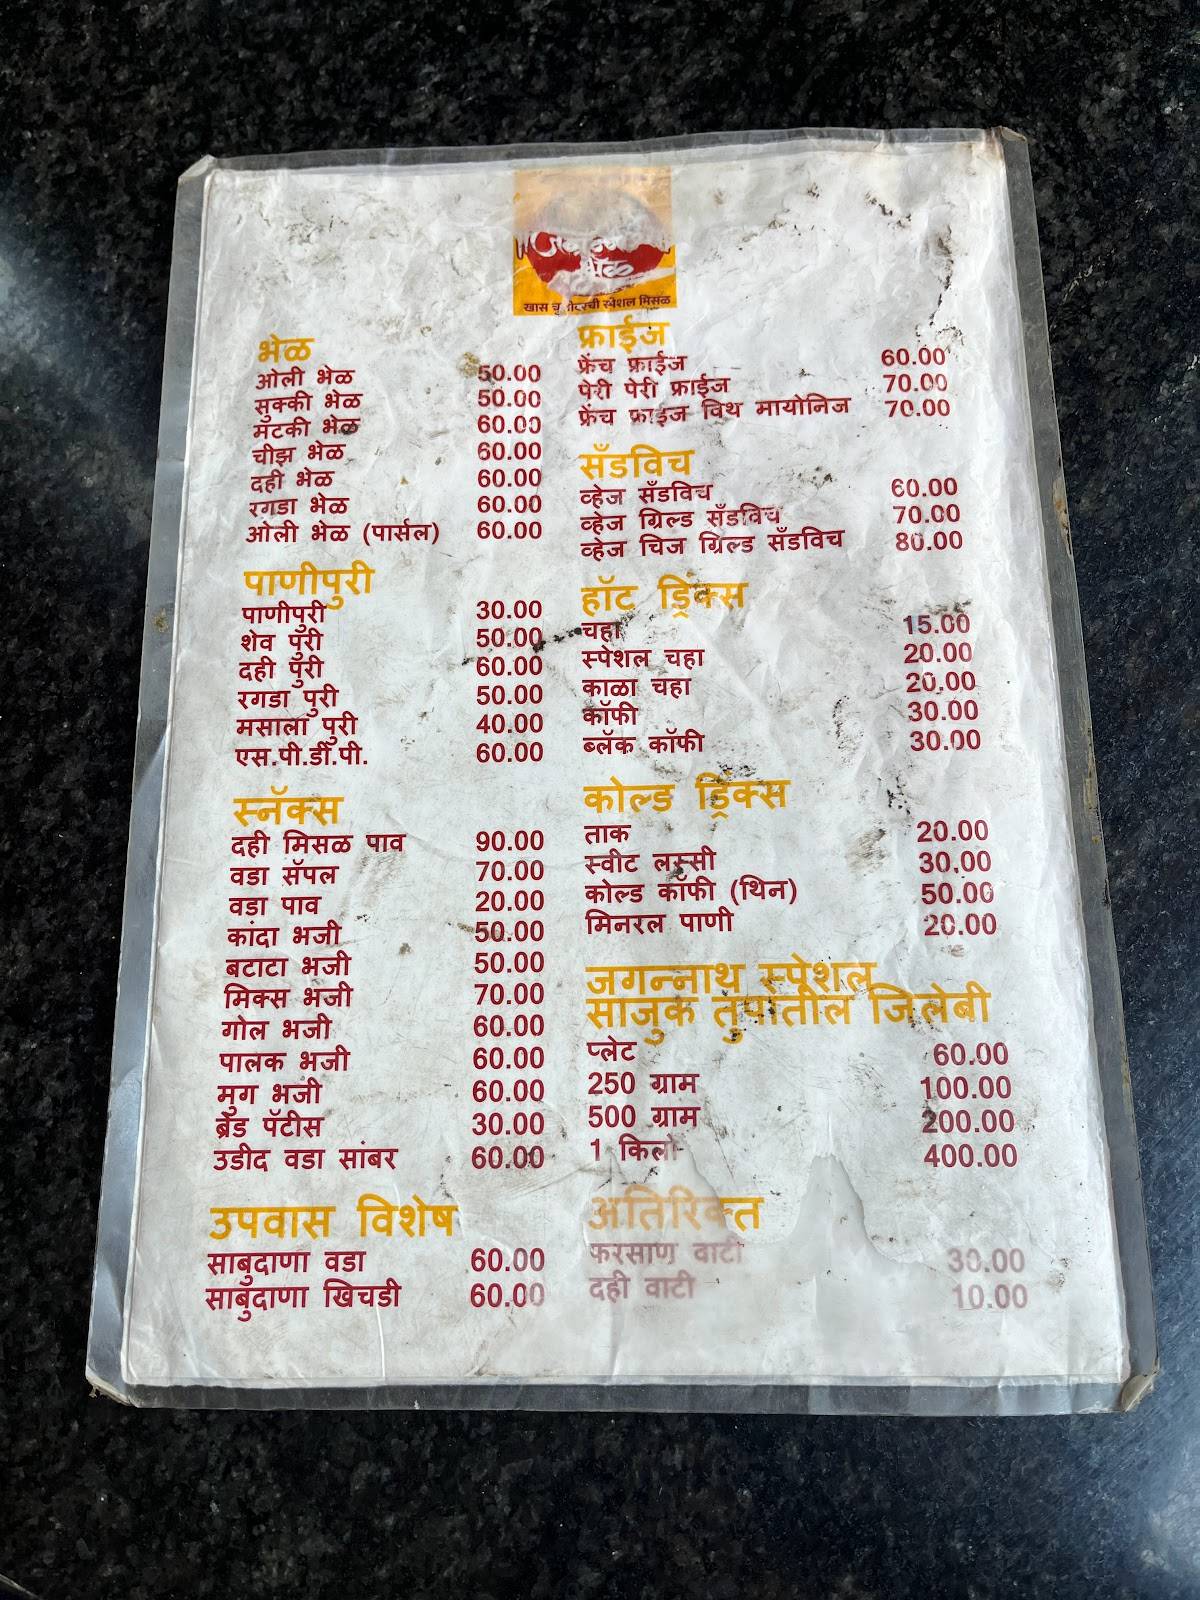 भेळ
खास स्पेशल मिसळ
भेळ
ओली भेळ 50.00
सुक्की भेळ 50.00
मटकी भेळ 60.00
चीझ भेळ 60.00
दही भेळ 60.00
रगडा भेळ 60.00
ओली भेळ (पार्सल) 60.00
पाणीपुरी
पाणीपुरी 30.00
शेव पुरी 50.00
दही पुरी 60.00
रगडा पुरी 50.00
मसाला पुरी 40.00
एस.पी.डी.पी. 60.00
स्नॅक्स
दही मिसळ पाव 90.00
वडा सॅपल 70.00
वडा पाव 20.00
कांदा भजी 50.00
बटाटा भजी 50.00
मिक्स भजी 70.00
गोल भजी 60.00
पालक भजी 60.00
मुग भजी 60.00
ब्रेड पॅटीस 30.00
उडीद वडा सांबर 60.00
उपवास विशेष
साबुदाणा वडा 60.00
साबुदाणा खिचडी 60.00
फ्राईज
फ्रेंच फ्राईज 60.00
पेरी पेरी फ्राईज 70.00
फ्रेंच फ्राईज विथ मायोनिज 70.00
सँडविच
व्हेज सँडविच 60.00
व्हेज ग्रिल्ड सँडविच 70.00
व्हेज चिज ग्रिल्ड सँडविच 80.00
हॉट ड्रिंक्स
चहा 15.00
स्पेशल चहा 20.00
काळा चहा 20.00
कॉफी 30.00
ब्लॅक कॉफी 30.00
कोल्ड ड्रिंक्स
ताक 20.00
स्वीट लस्सी 30.00
कोल्ड कॉफी (थिन) 50.00
मिनरल पाणी 20.00
जगन्नाथ स्पेशल
साजुक तुपातील जिलेबी
प्लेट 60.00
250 ग्राम 100.00
500 ग्राम 200.00
1 किलो 400.00
अतिरिक्त
फरसाण वाटी 30.00
दही वाटी 10.00